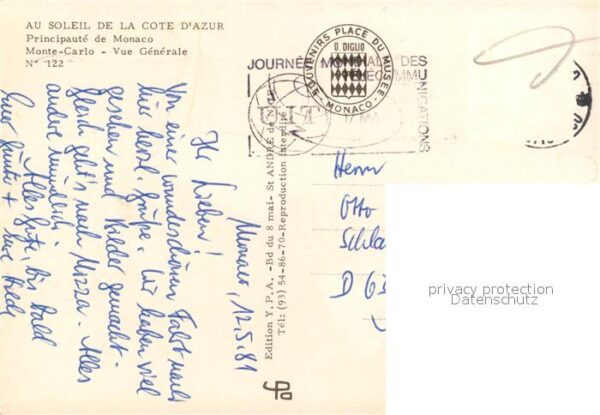 AU SOLEIL DE LA COTE D'AZUR
Principauté de Monaco
Monte-Carlo - Vue Générale
N° 122
JOURNÉE MONDIALE DES
TÉLÉCOMMUNICATIONS
17 MAI
UIT
SOUVENIRS PLACE DU MUSÉE
O. DIGLIO
- MONACO -
Edition Y.P.A. -Bd du 8 mai- St ANDRÉ de
Tél: (93) 54-86-70-Reproduction Interdite
Monaco, 12.5.81
Ihr Lieben!
Von einer wunderschönen Fahrt nach
hier herzl. Grüße. Wir haben viel
gesehen und Bilder gemacht.
Gleich geht's nach Nizza. Alles
andere mündlich.
Alles Gute, bis bald
Eure
Herrn
Otto
D 63
privacy protection
Datenschutz